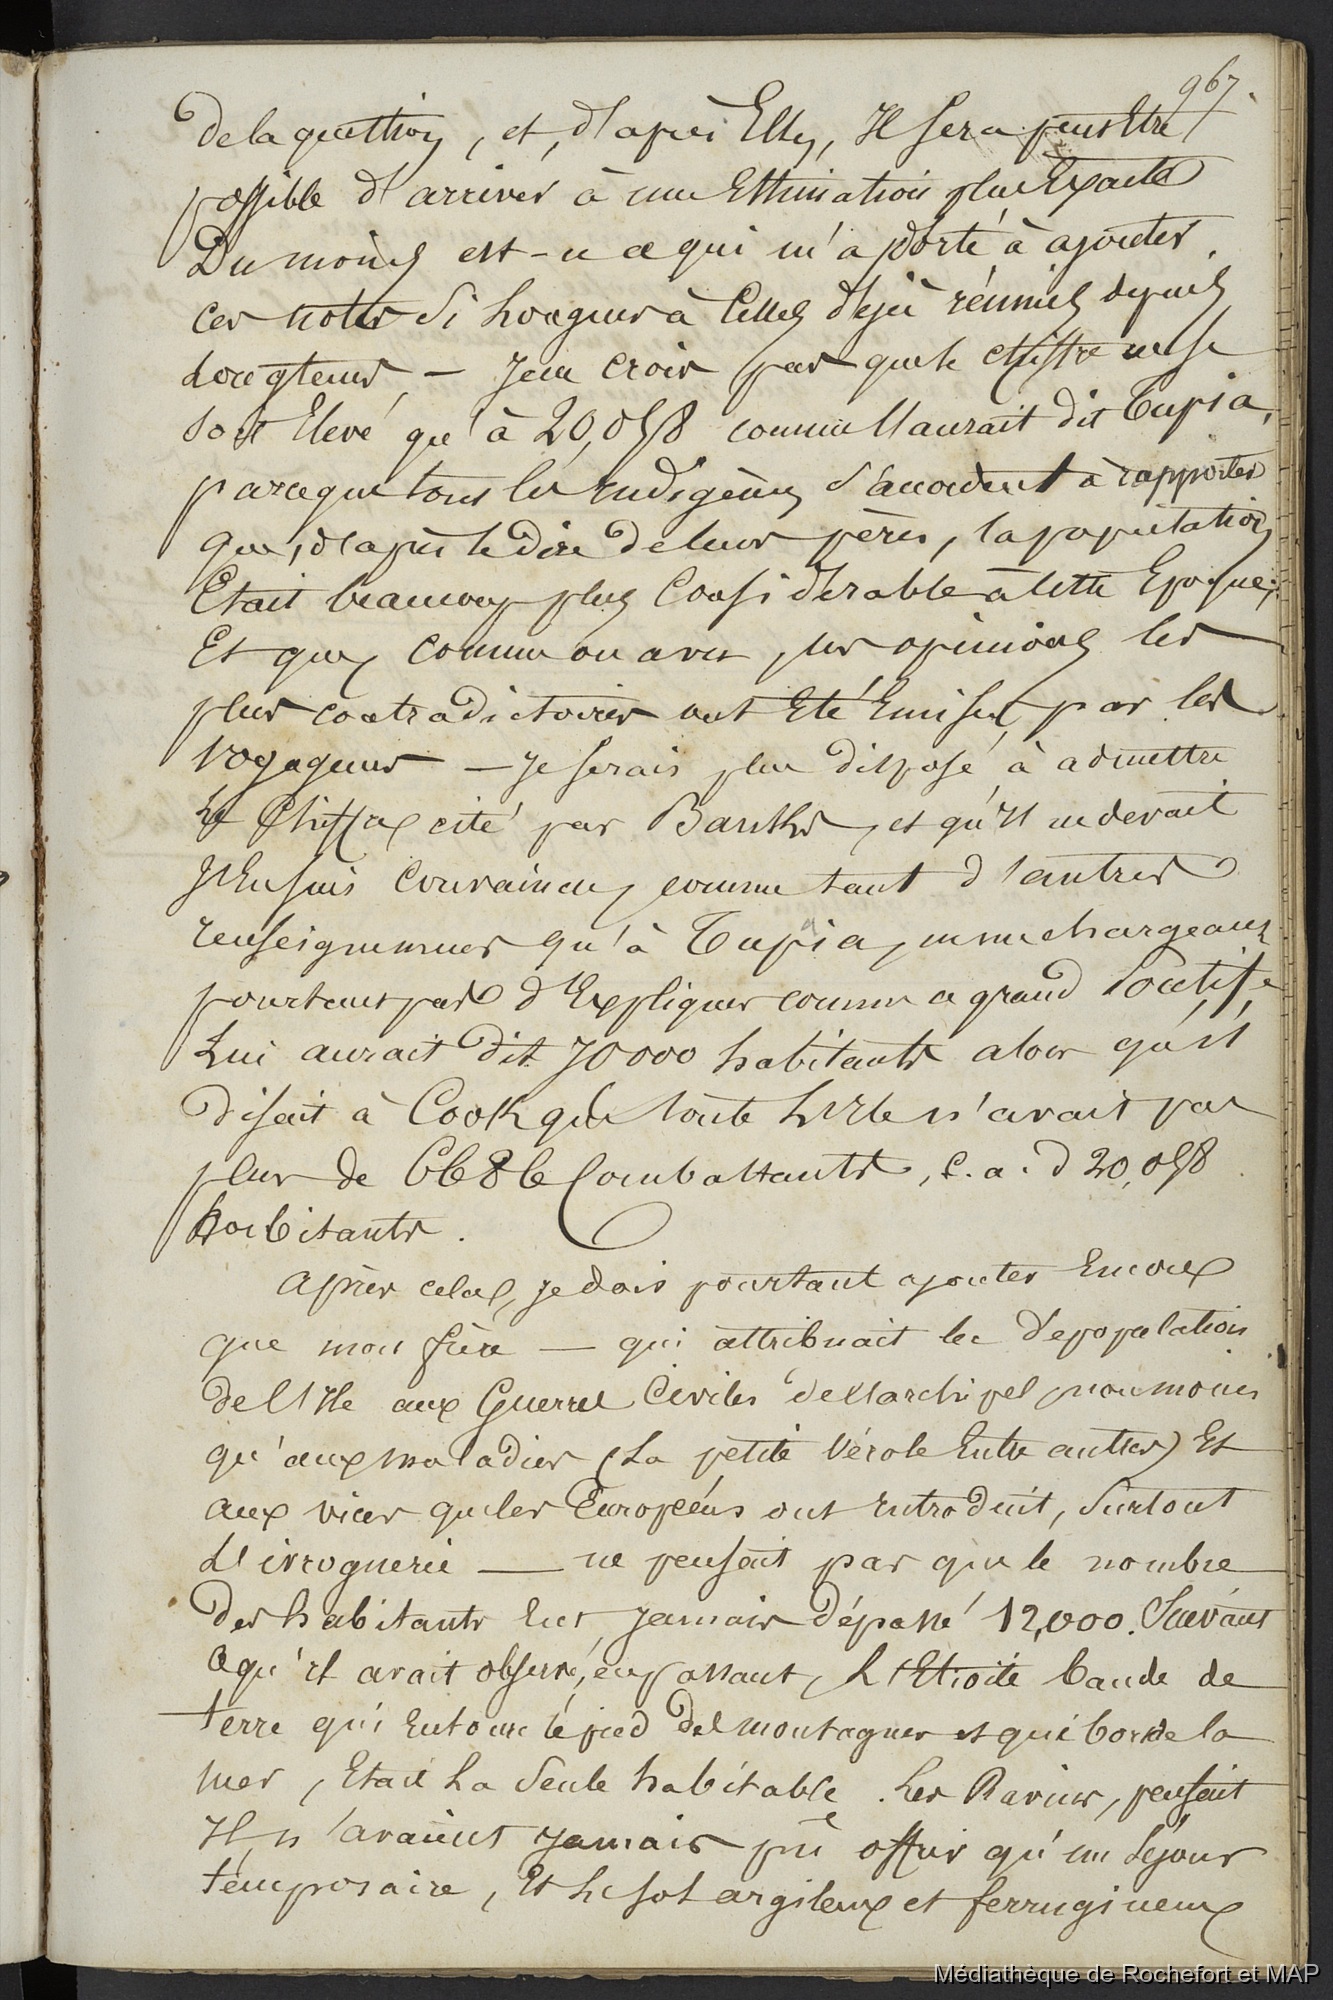 967.
de la question, et, d'après Elle, Il sera peut Etre
possible d'arriver à une Estimation plus Exacte
Du moins est-ce ce qui m'a porté à ajouter
ces notes si longues à Celles déjà réunies depuis
longtems, — Je ne crois pas que le chiffre ne se
soit Elevé qu'à 20,058 comme l'aurait dit Tupia,
parceque tous les Indigènes s'accordent à rapporter
que, d'après le dire de leurs pères, la population
Etait beaucoup plus Considérable à cette Epoque;
Et que, comme on a vu, les opinions les
plus contradictoires ont Eté Emises, par les
voyageurs — Je serais plus disposé, à admettre
Le Chiffre cité par Banks, et qu'Il ne devait
J'En suis Convaincu, comme tant d'autres
renseignemens qu'à Tupia, ne me chargeant
pourtant pas d'Expliquer comme ce grand
Lui aurait dit 70000 habitants alors qu'Il
disait à Cook que toute L'Ile n'avait pas
plus de 6686 Combattants, C. a. d 20,058
habitants.
Après cela, je dois pourtant ajouter Encore
que mon frère — qui attribuait la Dépopulation
de l'Ile aux Guerres Civiles de l'archipel, non moins
qu'aux maladies (La petite Vérole Entre autres) Et
aux vices que les Européens ont Introduit, Surtout
L'ivrognerie — ne pensait pas que le nombre
des habitants Eut Jamais dépassé 12,000. Suivant
ce qu'il avait observé, en passant, L'Etroite bande de
terre qui Entoure le pied des montagnes et qui borde la
mer, Etait La Seule habitable. Les Ravins, pensait
Il, n'avaient Jamais pû offrir qu'un Séjour
temporaire, Et le sol argileux et ferrugineux
Médiathèque de Rochefort et MAP